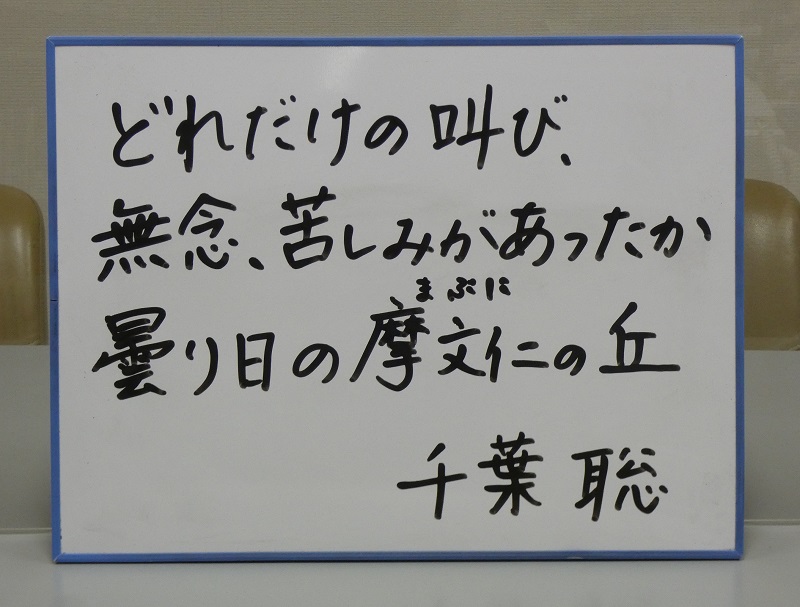 どれだけの叫び、
無念、苦しみがあったか
まぶに
曇り日の摩文仁の丘
千葉 聡